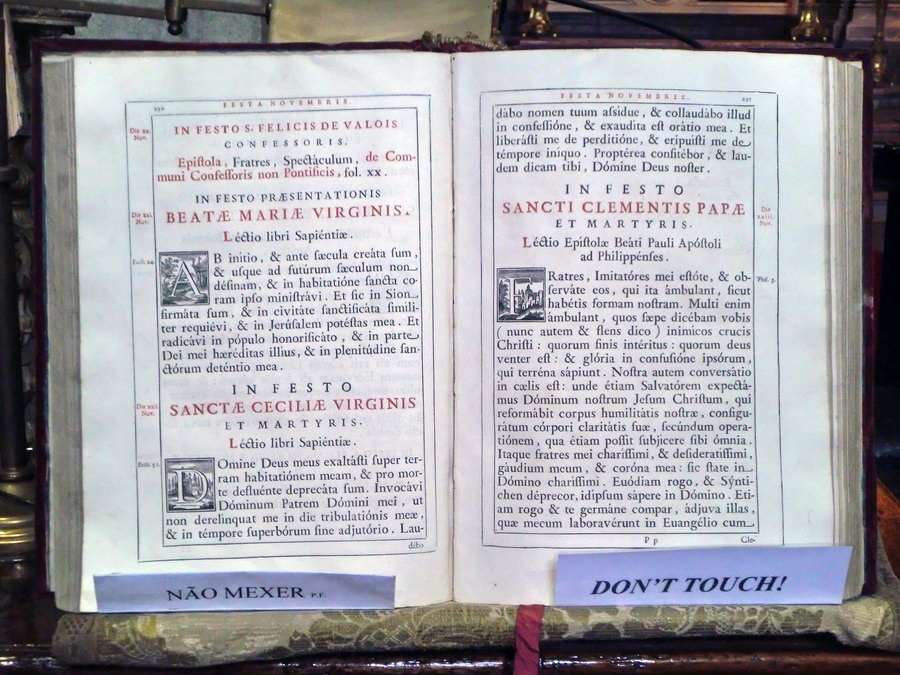 296
FESTA NOVEMBRIS.
Die xx. Nov.
IN FESTO S. FELICIS DE VALOIS
CONFESSORIS.
Epiſtola, Fratres, Spectáculum, de Com-
muni Confeſſoris non Pontificis, fol. xx.
IN FESTO PRÆSENTATIONIS
Die xxi. Nov.
BEATÆ MARIÆ VIRGINIS.
Léctio libri Sapiéntiæ.
Eccli. 24
AB inítio, & ante ſæcula creáta ſum,
& uſque ad futúrum ſæculum non
déſinam, & in habitatióne ſancta co-
ram ipſo miniſtrávi. Et ſic in Sion
firmáta ſum, & in civitáte ſanctificáta ſimíli-
ter requiévi, & in Jerúſalem potéſtas mea. Et
radicávi in pópulo honorificáto, & in parte
Dei mei hæréditas illíus, & in plenitúdine ſan-
ctórum deténtio mea.
IN FESTO
Die xxii. Nov.
SANCTÆ CECILIÆ VIRGINIS
ET MARTYRIS.
Léctio libri Sapiéntiæ.
Eccli. 51.
DOmine Deus meus exaltáſti ſuper ter-
ram habitatiónem meam, & pro mor-
te defluénte deprecáta ſum. Invocávi
Dóminum Patrem Dómini mei, ut
non derelinquat me in die tribulatiónis meæ,
& in témpore ſuperbórum ſine adjutório. Lau-
dábo
297
FESTA NOVEMBRIS.
dábo nomen tuum aſsídue, & collaudábo illud
in confeſſióne, & exaudíta eſt orátio mea. Et
liberáſti me de perditióne, & eripuíſti me de
témpore iníquo. Proptérea confitébor, & lau-
dem dicam tibi, Dómine Deus noſter.
IN FESTO
SANCTI CLEMENTIS PAPÆ
Die xxiii. Nov.
ET MARTYRIS.
Léctio Epíſtolæ Beáti Pauli Apóſtoli
ad Philippénſes.
Phil. 3.
FRatres, Imitatóres mei eſtóte, & ob-
ſerváte eos, qui ita ámbulant, ſicut
habétis formam noſtram. Multi enim
ámbulant, quos ſæpe dicébam vobis
( nunc autem & flens dico ) inimícos crucis
Chriſti : quorum finis intéritus : quorum deus
venter eſt : & glória in confuſióne ipſórum,
qui terréna ſápiunt. Noſtra autem converſátio
in cælis eſt : unde étiam Salvatórem expectá-
mus Dóminum noſtrum Jeſum Chriſtum, qui
reformábit corpus humilitátis noſtræ, configu-
rátum córpori claritátis ſuæ, ſecúndum opera-
tiónem, qua étiam poſſit ſubjícere ſibi ómnia.
Itaque fratres mei chariſſimi, & deſideratíſſimi,
gáudium meum, & coróna mea : ſic ſtate in
Dómino chariſſimi. Euódiam rogo, & Sýnti-
chen déprecor, idípſum ſápere in Dómino. Eti-
am rogo & te germáne compar, ádjuva illas,
quæ mecum laboravérunt in Euangélio cum
P p
Cle-
NÃO MEXER P.F.
DON'T TOUCH!